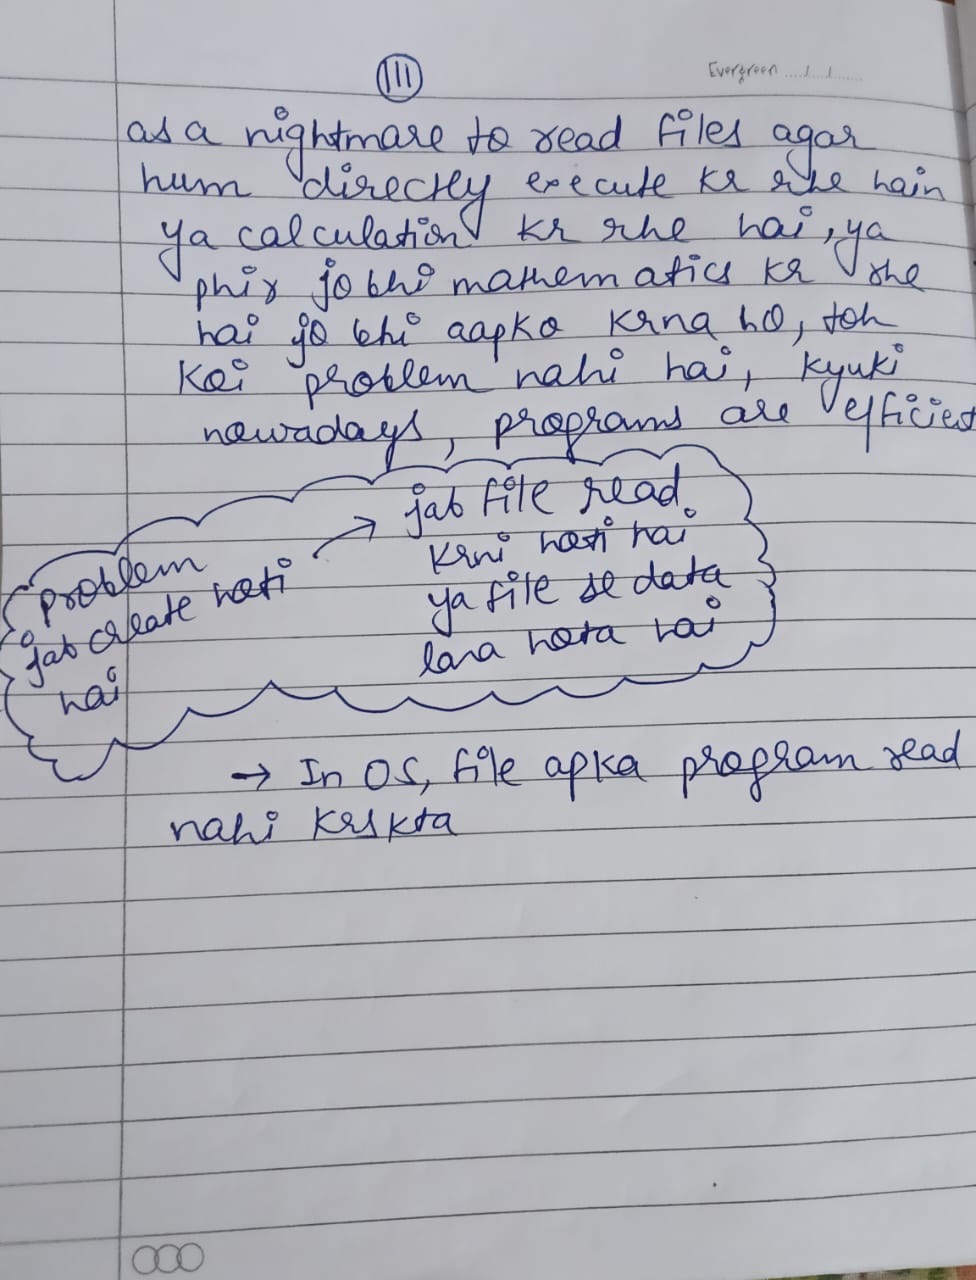 III
Evergreen ...../...../.....
as a nightmare to read files agar
hum directly execute kr rhe hain
ya calculation kr rhe hai, ya
phir jo bhi mathematics kr rhe
hai jo bhi aapko krna ho, toh
koi problem nahi hai, kyuki
nowadays, programs are efficient
problem
jab create hoti
hai
→ jab file read
krni hoti hai
ya file se data
lana hota hai
→ In OS, file apka program read
nahi krskta